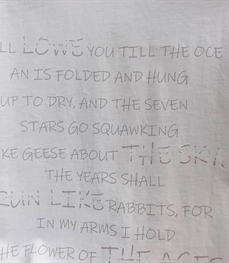 LL LOWE YOU TILL THE OCE
AN IS FOLDED AND HUNG
UP TO DRY, AND THE SEVEN
STARS GO SQUAWKING
KE GEESE ABOUT THE SKY
THE YEARS SHALL
RUN LIKE RABBITS, FOR
IN MY ARMS I HOLD
HE FLOWER OF THE AGES